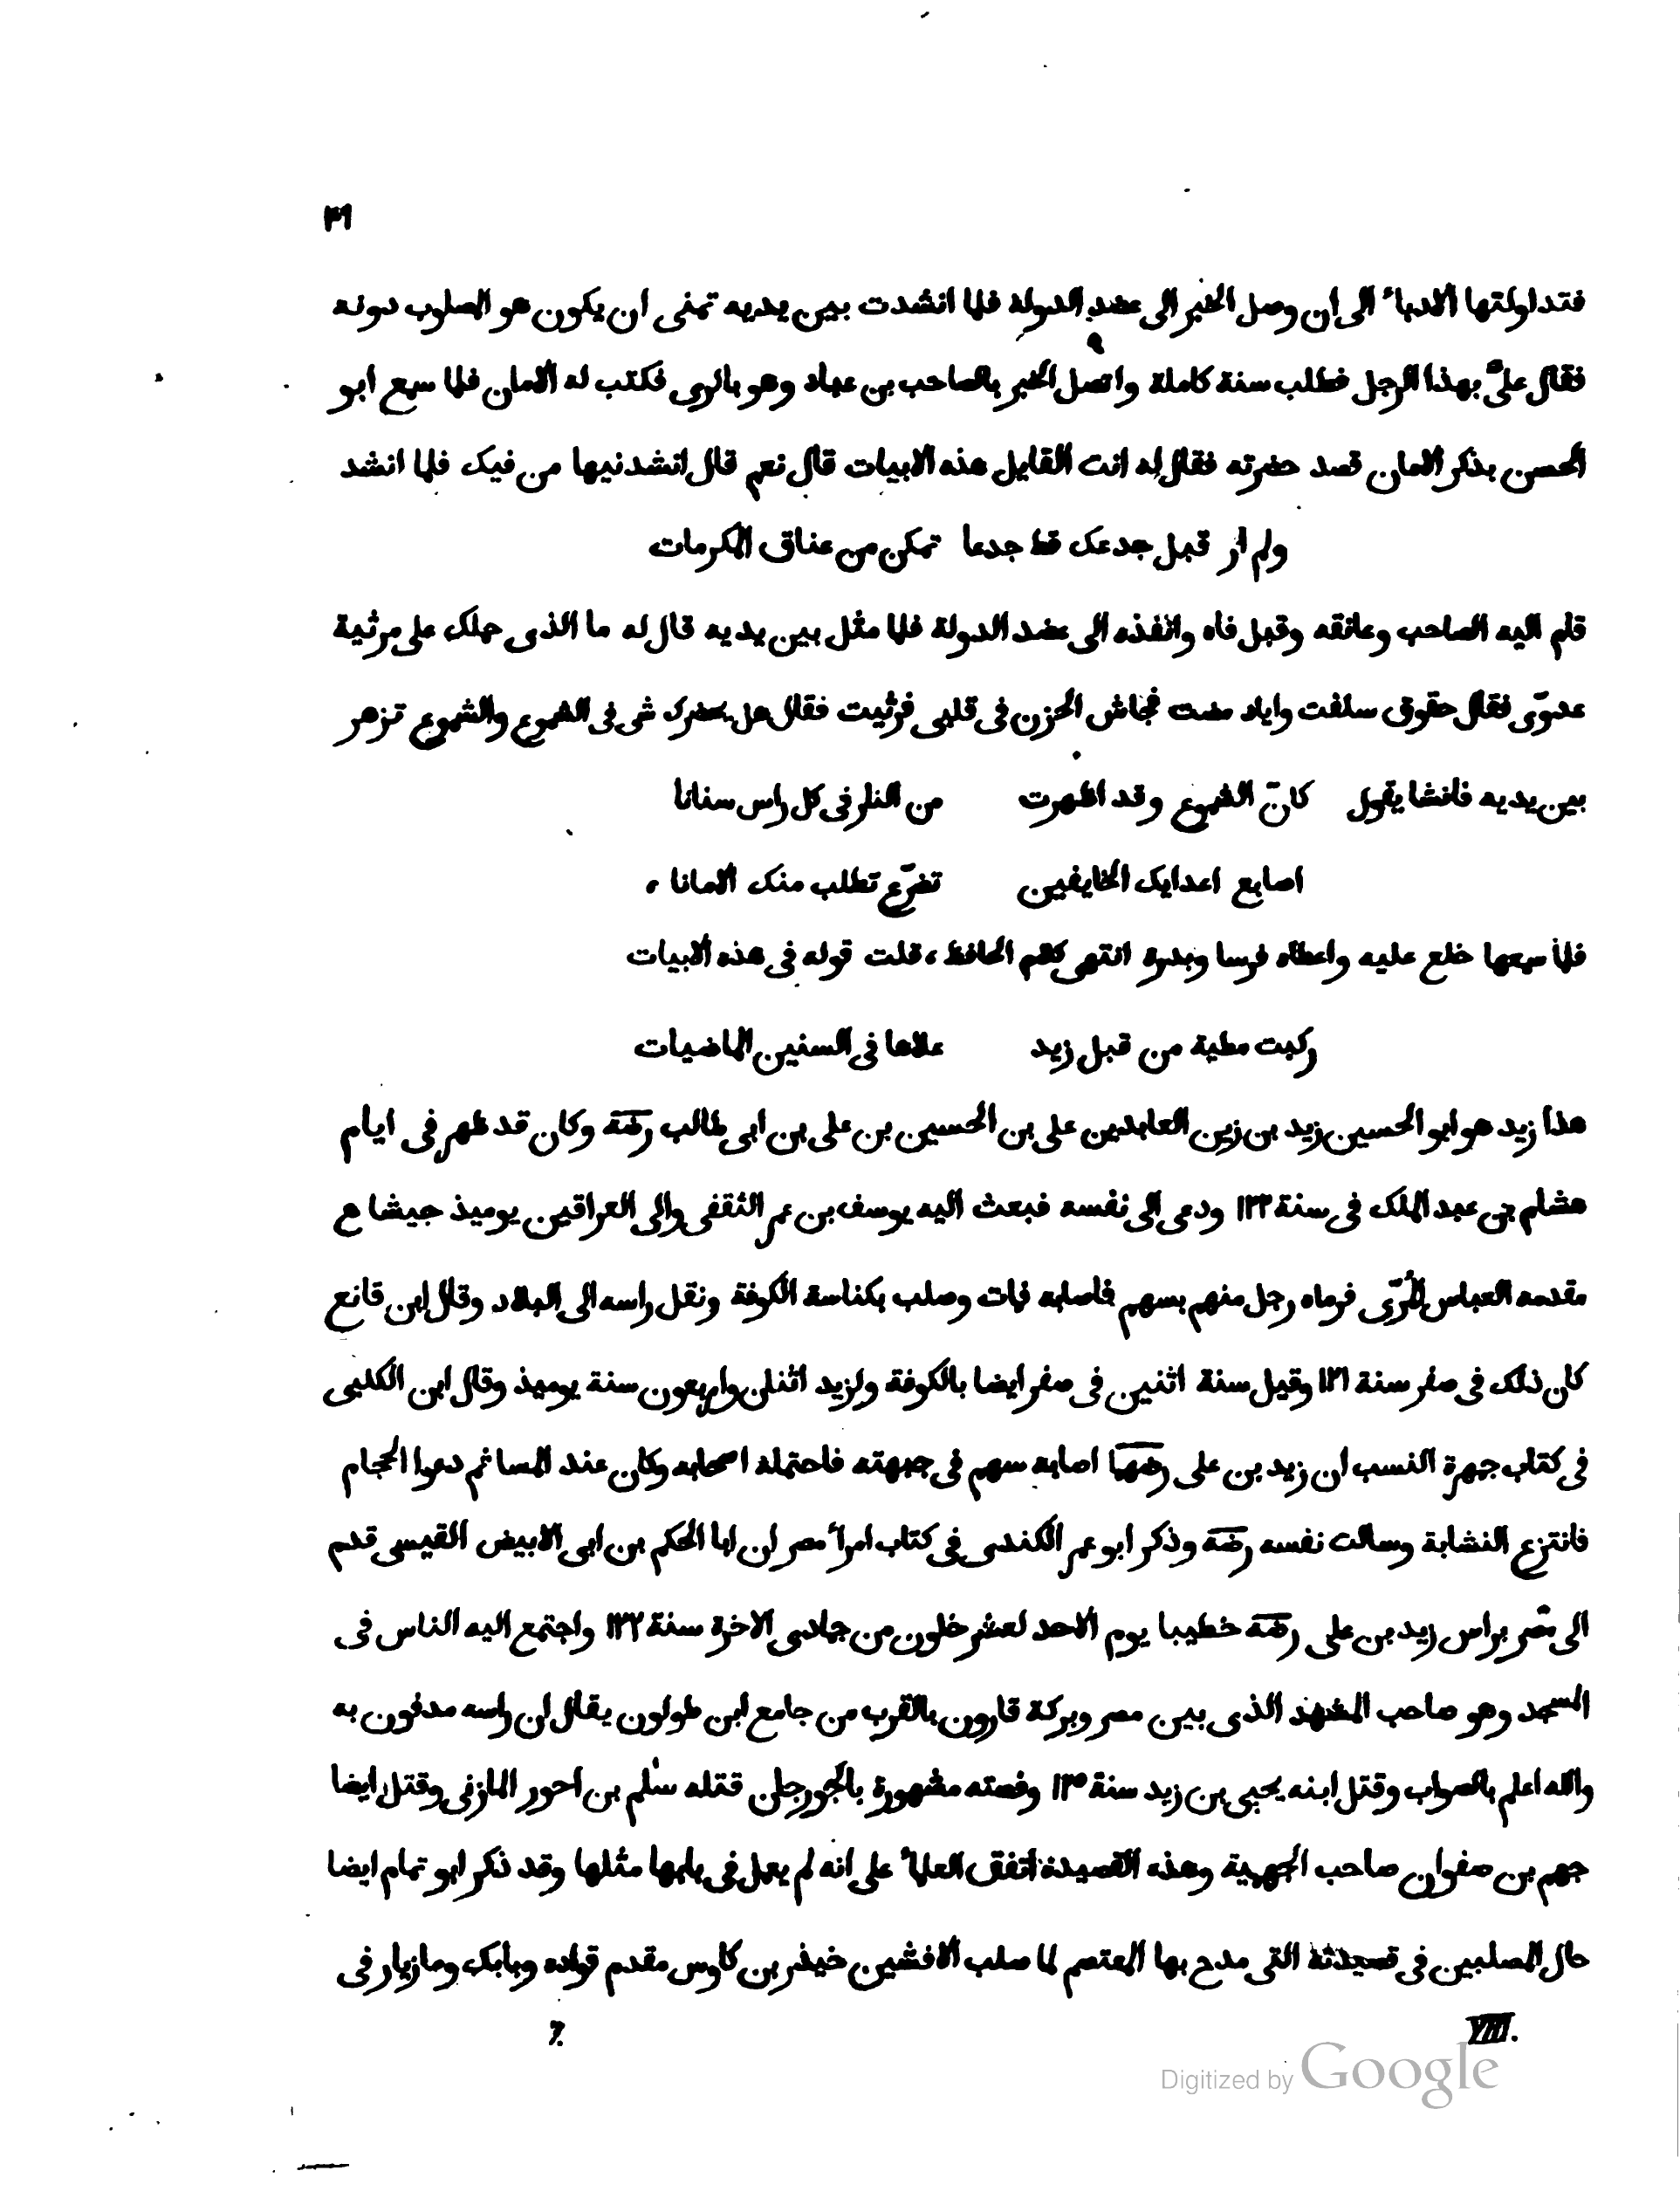 ٤٩
فتداولتها الادباء الى ان وصل الخبر الى عضد الدولة فلما انشدت بين يديه تمنى ان يكون هو المصلوب دونه
فقال علىّ بهذا الرجل فطلب سنة كاملة واتصل الخبر بالصاحب بن عباد وهو بالرى فكتب له الامان فلما سمع ابو
الحسن بذكر الامان قصد حضرته فقال له انت القايل هذه الابيات قال نعم قال انشدنيها من فيك فلما انشد
ولم ار قبل جدعك قط جدعا تمكن من عناق المكرمات
قام اليه الصاحب وعانقه وقبل فاه وانفذه الى عضد الدولة فلما مثل بين يديه قال له ما الذى حملك على مرثية
عدوّى فقال حقوق سلفت واياد مضت فجاش الحزن فى قلبى فرثيت فقال هل يحضرك شى فى الشموع والشموع تزهر
بين يديه فانشا يقول كانّ الشموع وقد اظهرت من النار فى كل راس سنانا
اصابع اعدايك الخايفين تضرّع تطلب منك الامانا ،
فلما سمعها خلع عليه واعطاه فرسا وبدرة انتهى كلام الحافظ ، قلت قوله فى هذه الابيات
ركبت مطية من قبل زيد علاها فى السنين الماضيات
هذا زيد هو ابو الحسين زيد بن زين العابدين على بن الحسين بن على بن ابى طالب رضة وكان قد ظهر فى ايام
هشام بن عبد الملك فى سنة ١٢٢ ودعى الى نفسه فبعث اليه يوسف بن عمر الثقفى والى العراقين يوميذ جيشا ع
مقدمه العباس المُرّى فرماه رجل منهم بسهم فاصابه فمات وصلب بكناسة الكوفة ونقل راسه الى البلاد وقال ابن قانع
كان ذلك فى صفر سنة ١٢١ وقيل سنة اثنين فى صفر ايضا بالكوفة ولزيد اثنان واربعون سنة يوميذ وقال ابن الكلبى
فى كتاب جمهرة النسب ان زيد بن على رضهما اصابه سهم فى جبهته فاحتمله اصحابه وكان عند المسا ثم دعوا الحجام
فانتزع النشابة وسالت نفسه رضة وذكر ابو عمر الكندى فى كتاب امراء مصر ان ابا الحكم بن ابى الابيض القيسى قدم
الى مصر براس زيد بن على رضة خطيبا يوم الاحد لعشر خلون من جمادى الاخرة سنة ١٢٢ واجتمع اليه الناس فى
المسجد وهو صاحب المشهد الذى بين مصر وبركة قارون بالقرب من جامع ابن طولون يقال ان راسه مدفون به
والله اعلم بالصواب وقتل ابنه يحيى بن زيد سنة ١٢٥ وقصته مشهورة بالجورجان قتله سَلم بن احور المازنى وقتل ايضا
جهم بن صفوان صاحب الجهمية وهذه القصيدة اتفق العلماء على انه لم يعمل فى بابها مثلها وقد ذكر ابو تمام ايضا
حال المصلبين فى قصيدته التى مدح بها المعتصم لما صلب الافشين خيذر بن كاوس مقدم قواده وبابك ومازيار فى
VIII. 7.
Digitized by Google